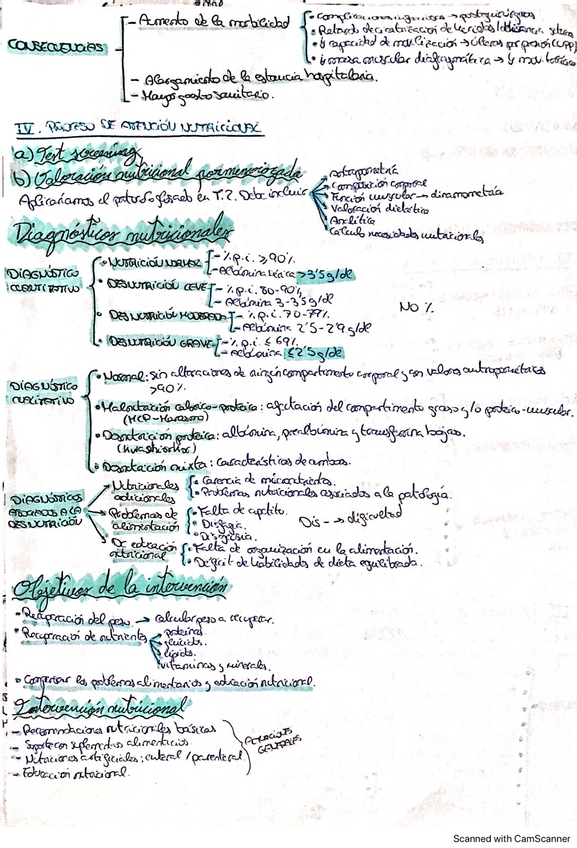 - Aumento de la morbilidad
• Complicaciones → postquirúrgicas
• Retardo de cicatrización de heridas
↓ capacidad de movilización → úlceras por presión (UPP)
↓ masa muscular diafragmática → ↓ mov.
CONSECUENCIAS
- Alargamiento de la estancia hospitalaria.
- Mayor gasto sanitario.
IV. PROCESO DE ATENCIÓN NUTRICIONAL
a) Test screening
b) Valoración nutricional pormenorizada
Aplicaríamos el protocolo fijado en T.2. Debe incluir
antropometría
Composición corporal
Función muscular → dinamometría
Valoración dietética
Analítica
Cálculo necesidades nutricionales
Diagnósticos nutricionales
DIAGNÓSTICO CUANTITATIVO
• NUTRICIÓN NORMAL
- %p.i. >90%
- Albúmina sérica >3'5 g/dl
• DESNUTRICIÓN LEVE
- %p.i. 80-90%
- Albúmina 3-3'5 g/dl
No %
• DESNUTRICIÓN MODERADA
- %p.i. 70-79%
- Albúmina 2'5-2'9 g/dl
• DESNUTRICIÓN GRAVE
- %p.i. ≤ 69%
- Albúmina ≤2'5 g/dl
DIAGNÓSTICO CUALITATIVO
• Normal: sin alteraciones de ningún compartimento corporal y con valores antropométricos
>90%.
• Malnutrición calórico-proteica: afectación del compartimento graso y/o proteico-muscular.
(MCP-Marasmo)
• Desnutrición proteica: albúmina, prealbúmina y transferrina bajas.
(Kwashiorkor)
• Desnutrición mixta: Características de ambas.
DIAGNÓSTICOS ASOCIADOS A LA DESNUTRICIÓN
Nutricionales adicionales
• Carencia de micronutrientes.
• Problemas nutricionales asociados a la patología.
Problemas de alimentación
• Falta de apetito.
• Disfagia.
• Disgeusia.
Dis- → dificultad
De educación nutricional
• Falta de organización en la alimentación.
• Déficit de habilidades de dieta equilibrada.
Objetivos de la intervención
• Recuperación del peso → calcular peso a recuperar.
• Recuperación de nutrientes
proteínas
glúcidos.
lípidos.
vitaminas y minerales.
• Compensar los problemas alimentarios y educación nutricional.
Intervención nutricional
- Recomendaciones nutricionales básicas
- Soporte con suplementos alimenticios
- Nutriciones artificiales: enteral / parenteral
- Educación nutricional.
GENERALES
Scanned with CamScanner